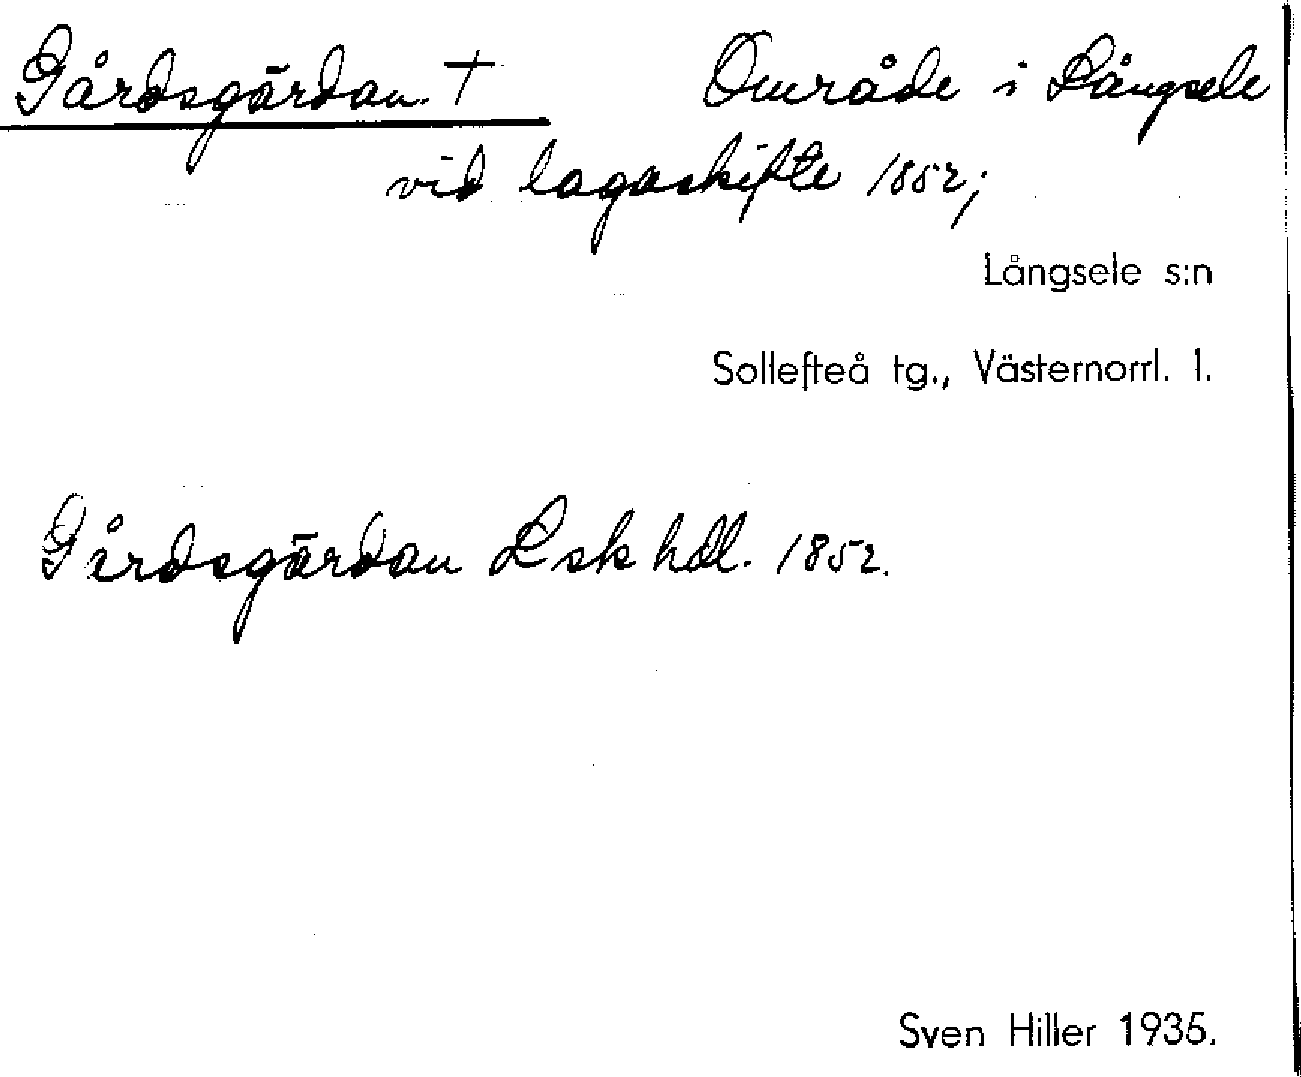 Gårdsgärdan † Område i Långsele
vid lagaskifte 1852;
Långsele s:n
Sollefteå tg., Västernorrl. l.
Gårdsgärdan Lsk hdl. 1852.
Sven Hiller 1935.